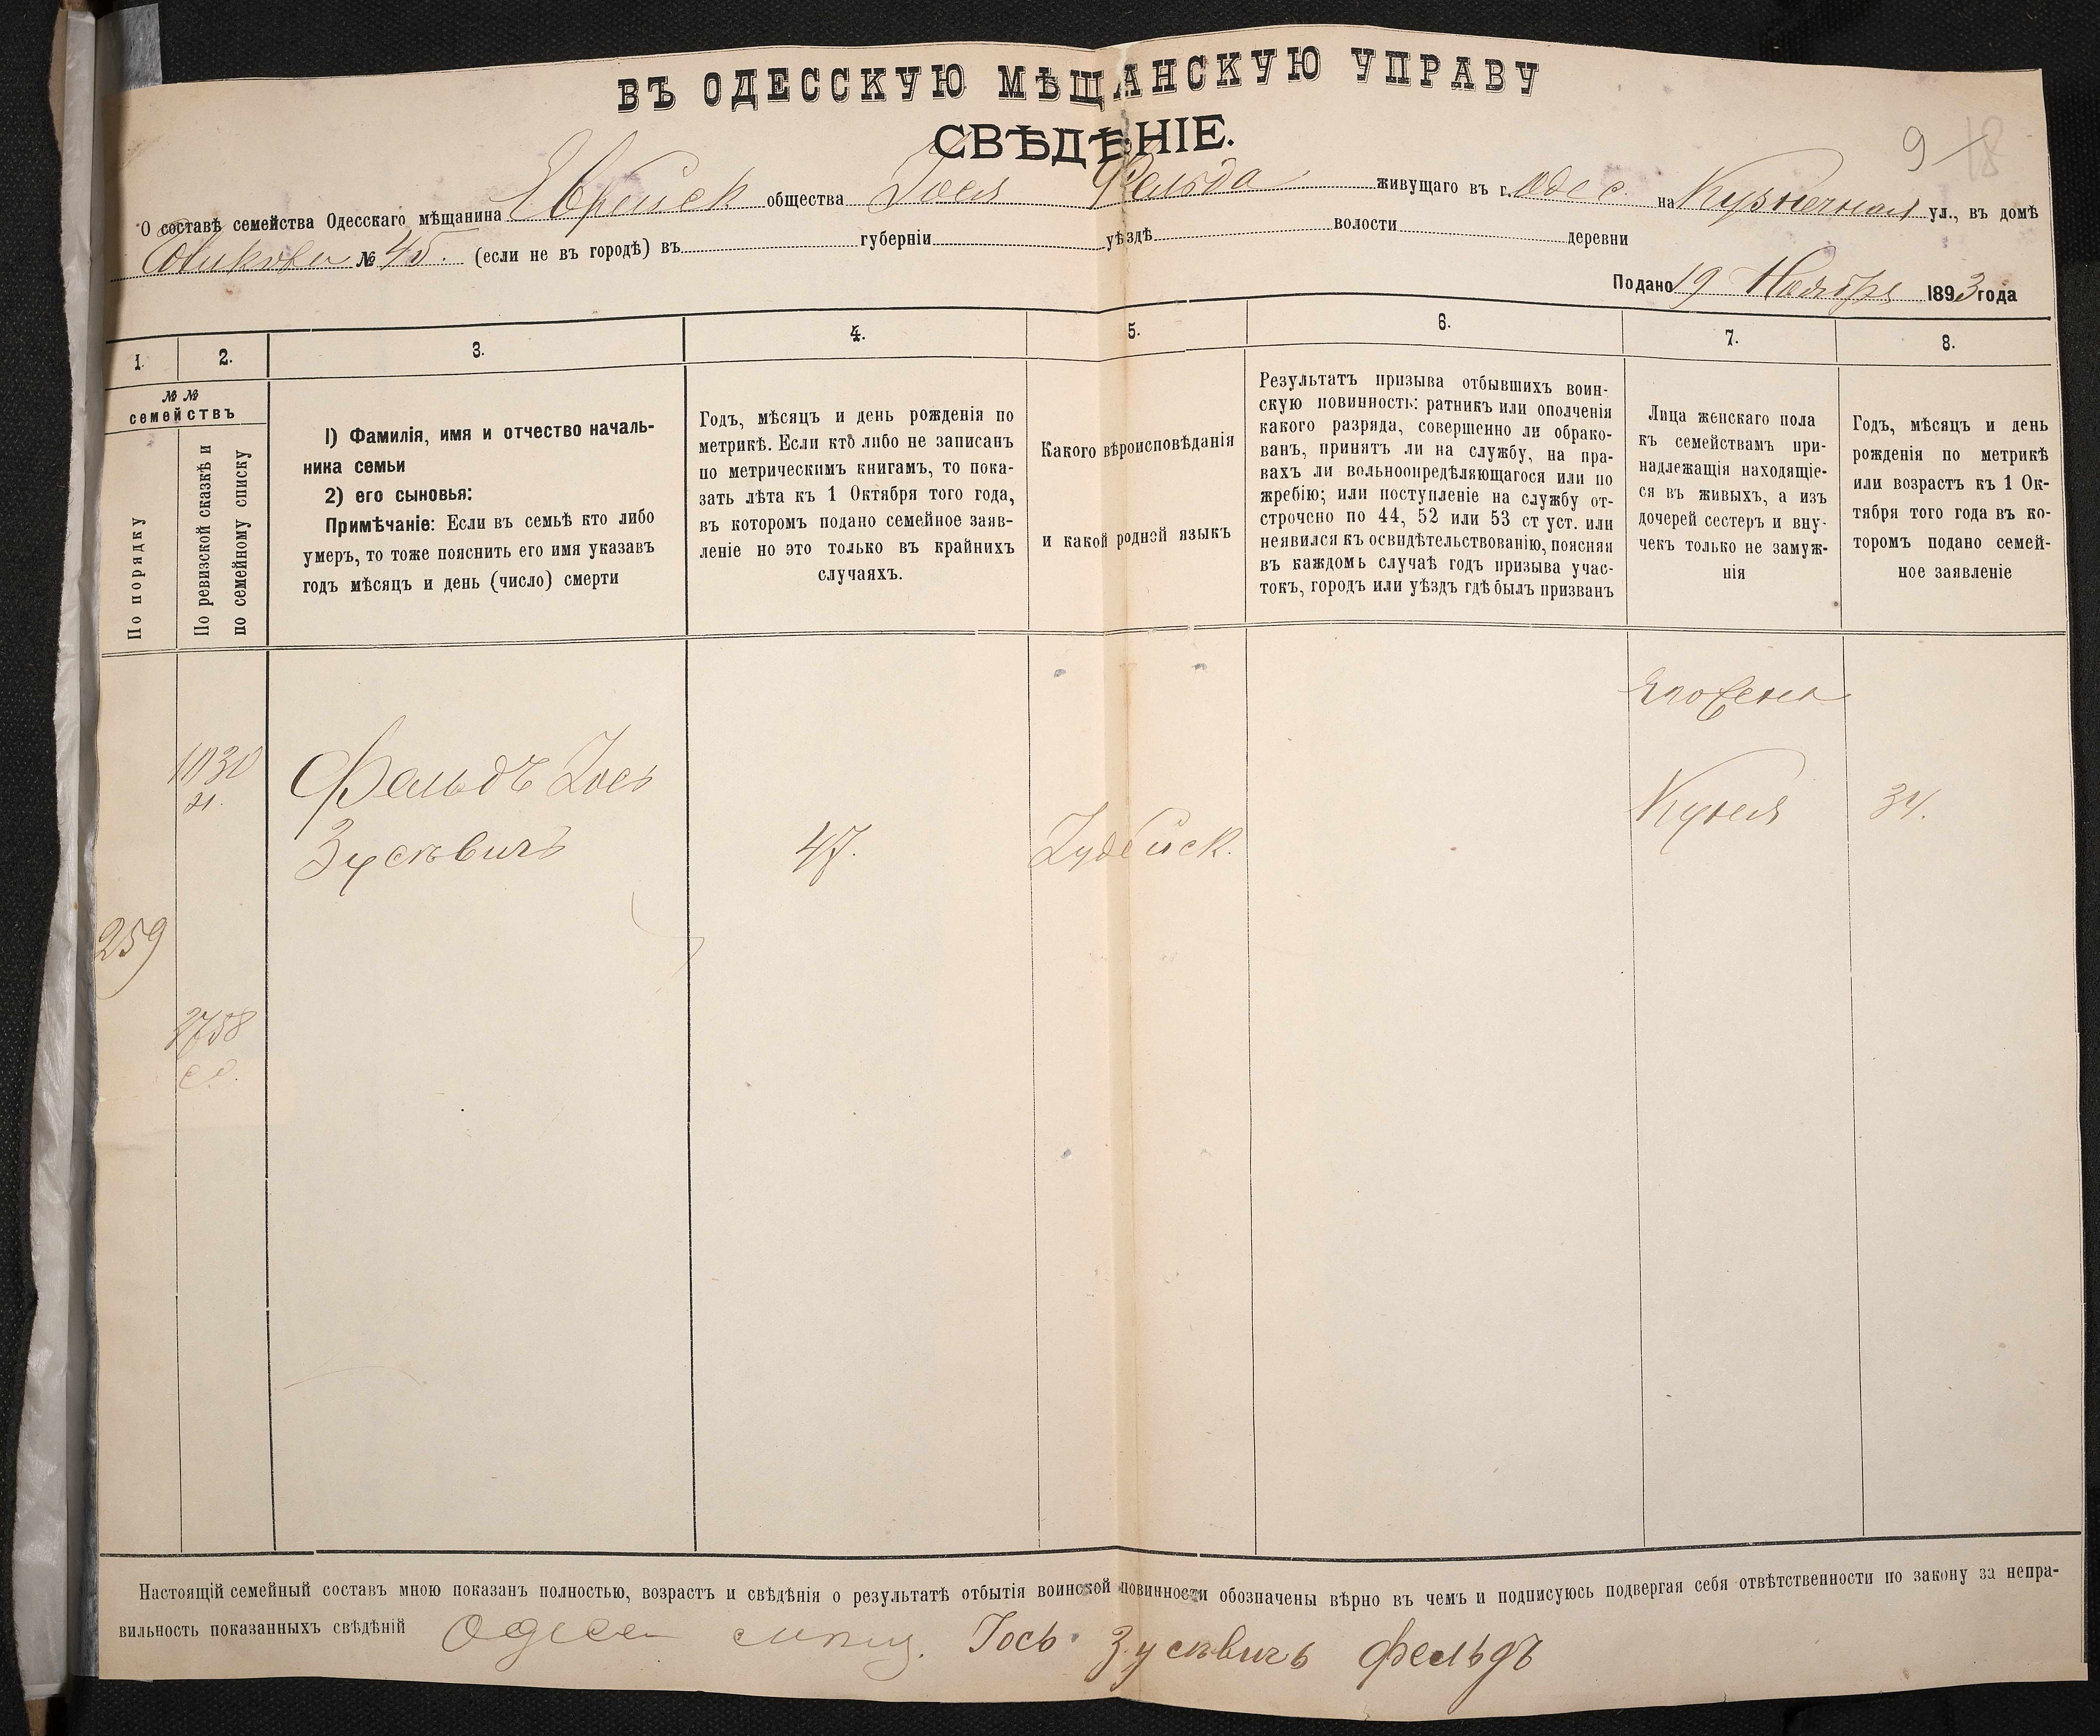 ВЪ ОДЕССКУЮ МѢЩАНСКУЮ УПРАВУ
СВѢДѢНІЕ.
9
18
О составѣ семейства Одесскаго мѣщанина Еврейск общества Іося Фельда живущаго въ г. Одес. на Кузнечная ул., въ домѣ
№ 45. (если не въ городѣ) въ губерніи уѣздѣ волости деревни
Подано 19 Ноября 1893 года
1.
2.
3.
4.
5.
6.
7.
8.
№ №
семействъ
По порядку
По ревизской сказкѣ и
по семейному списку
1) Фамилія, имя и отчество началь-
ника семьи
2) его сыновья:
Примѣчаніе: Если въ семьѣ кто либо
умеръ, то тоже пояснить его имя указавъ
годъ мѣсяцъ и день (число) смерти
Годъ, мѣсяцъ и день рожденія по
метрикѣ. Если кто либо не записанъ
по метрическимъ книгамъ, то пока-
зать лѣта къ 1 Октября того года,
въ которомъ подано семейное заяв-
леніе но это только въ крайнихъ
случаяхъ.
Какого вѣроисповѣданія
и какой родной языкъ
Результатъ призыва отбывшихъ воин-
скую повинность: ратникъ или ополченія
какого разряда, совершенно ли обрако-
ванъ, принятъ ли на службу, на пра-
вахъ ли вольноопредѣляющагося или по
жребію; или поступленіе на службу от-
строчено по 44, 52 или 53 ст уст. или
неявился къ освидѣтельствованію, поясняя
въ каждомъ случаѣ годъ призыва учас-
токъ, городъ или уѣздъ гдѣ былъ призванъ
Лица женскаго пола
къ семействамъ при-
надлежащія находящіе-
ся въ живыхъ, а изъ
дочерей сестеръ и вну-
чекъ только не замуж-
нія
Годъ, мѣсяцъ и день
рожденія по метрикѣ
или возрастъ къ 1 Ок-
тября того года въ ко-
торомъ подано семей-
ное заявленіе
Фельдъ Іось
Зусьвичъ
47.
Іудейск.
Куня
34.
259
2758
Настоящій семейный составъ мною показанъ полностью, возрастъ и свѣдѣнія о результатѣ отбытія воинской повинности обозначены вѣрно въ чемъ и подписуюсь подвергая себя отвѣтственности по закону за непра-
вильность показанныхъ свѣдѣній Іось Зусьвичъ Фельдъ